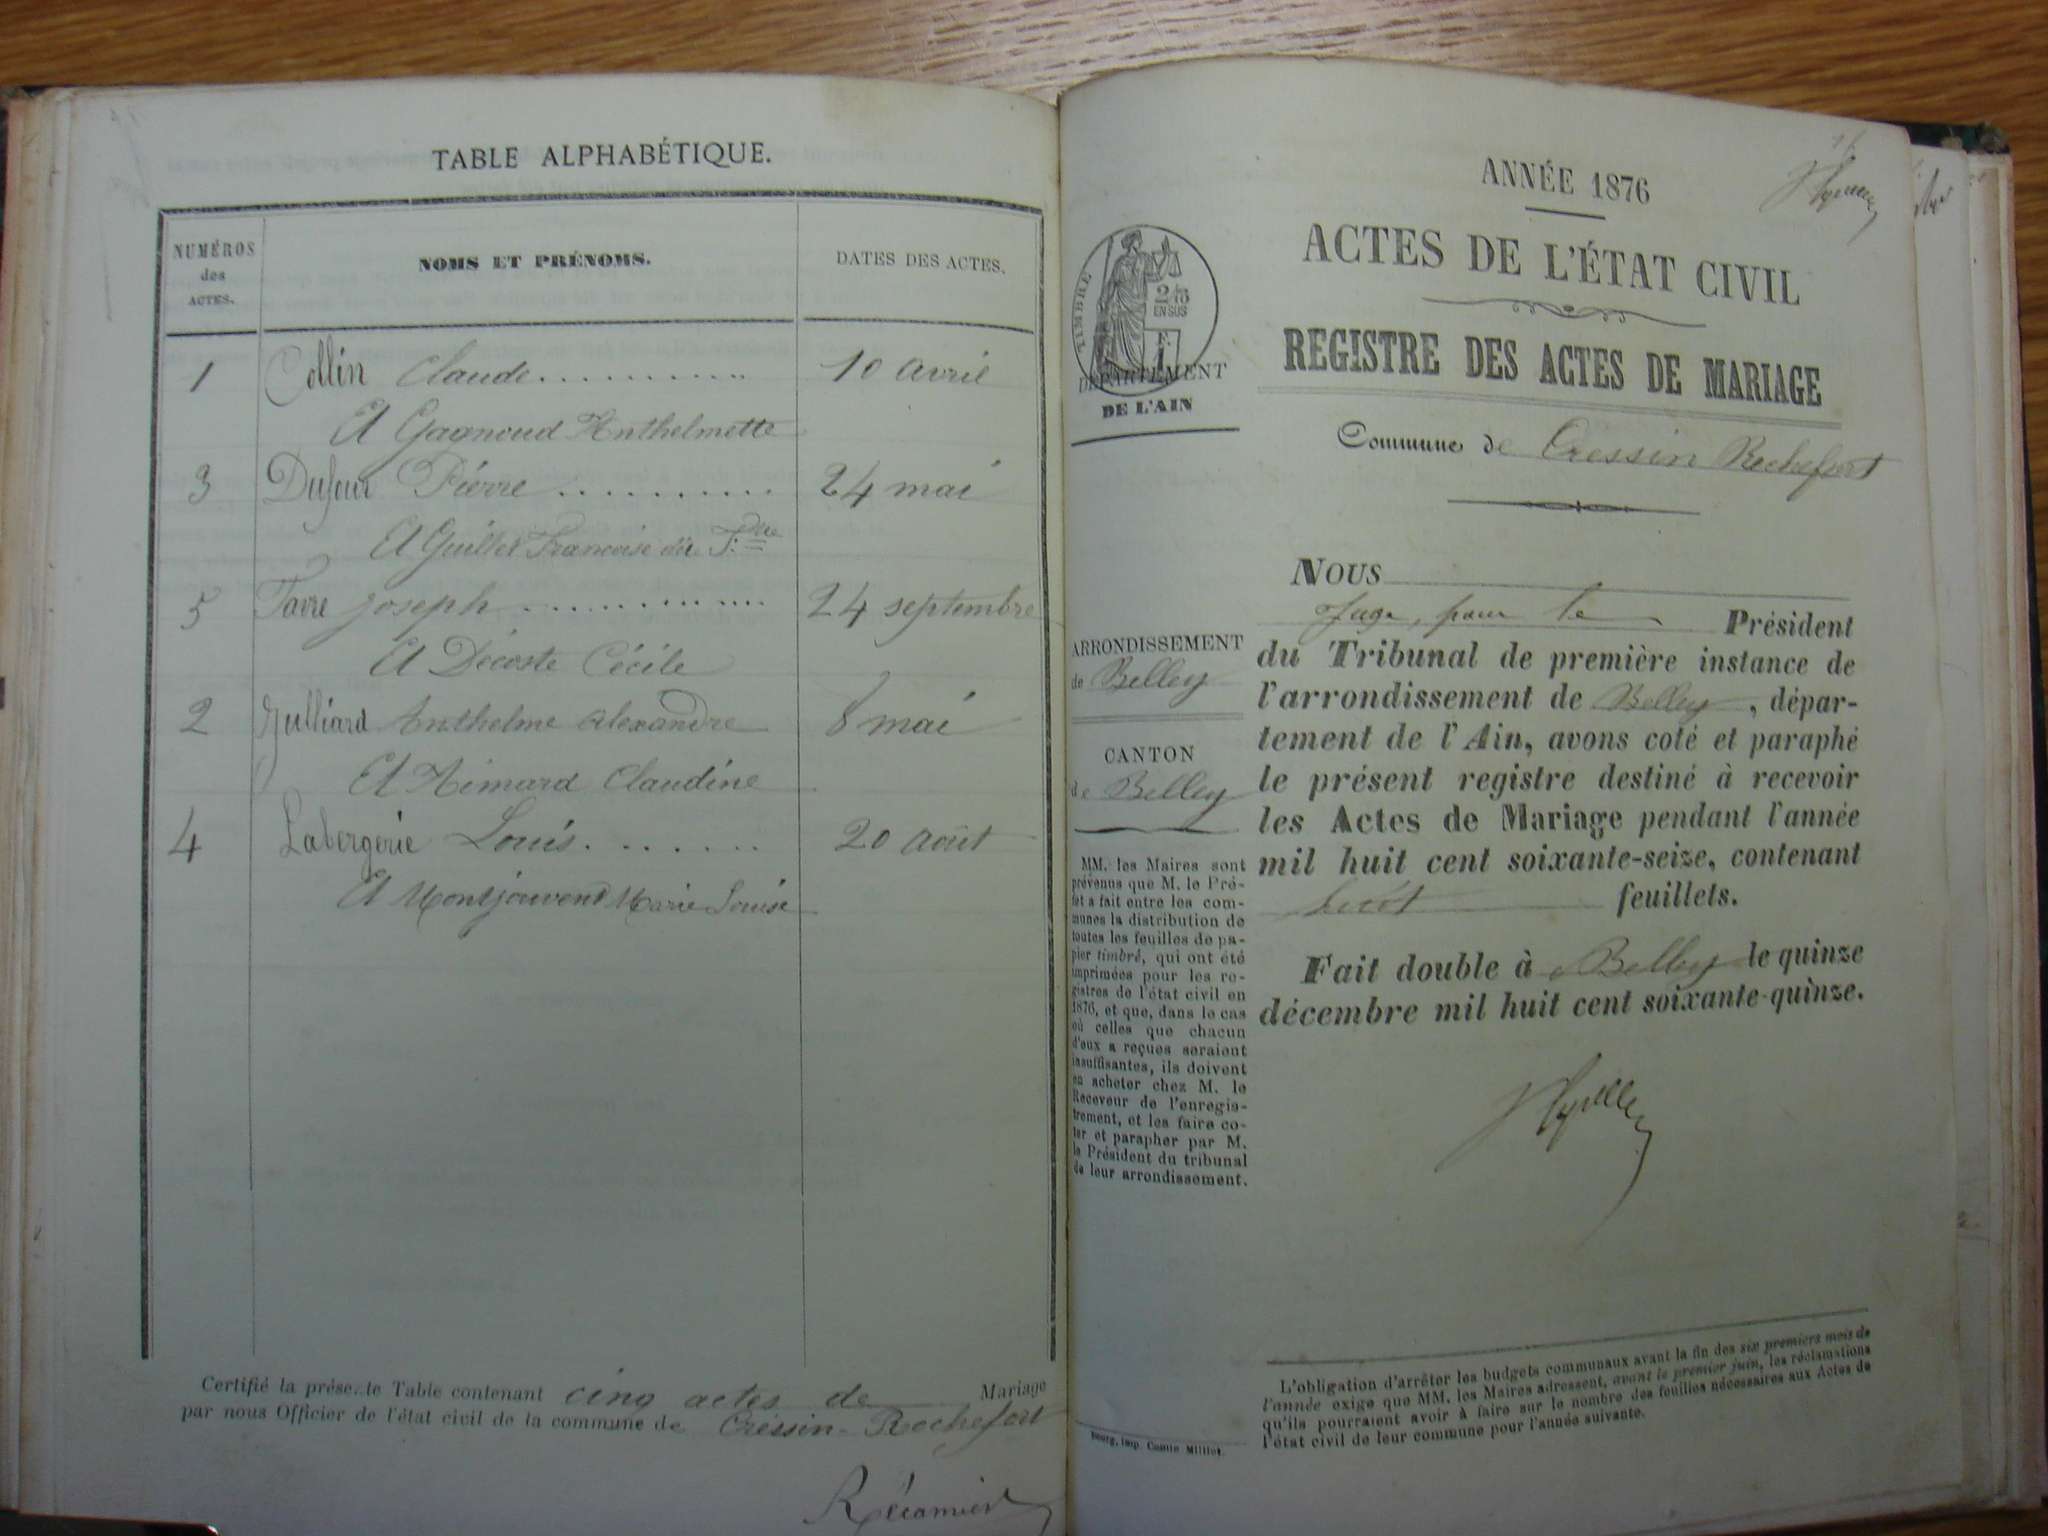 TABLE ALPHABÉTIQUE.
NUMÉROS
des
ACTES.
NOMS ET PRÉNOMS.
DATES DES ACTES.
1 Collin Claude.......... 10 avril
Et Gagnoud Anthelmette
3 Dufour Pierre .......... 24 mai
Et Guillet Françoise dit
5 Favre Joseph ............. 24 septembre
Et Décoste Cécile
2 Julliard Anthelme Alexandre 8 mai
Et Aimard Claudine
4 Labergerie Louis. ...... 20 août
Et Montjouvent Marie Louise
Certifié la présente Table contenant cinq actes de Mariage
par nous Officier de l'état civil de la commune de Cressin-Rochefort
Récamier
ANNÉE 1876
ACTES DE L'ÉTAT CIVIL
REGISTRE DES ACTES DE MARIAGE
Commune de Cressin Rochefort
TIMBRE
2/10
EN SUS
F.
1
DÉPARTEMENT
DE L'AIN
ARRONDISSEMENT
de Belley
CANTON
de Belley
MM. les Maires sont
prévenus que M. le Pré-
fet a fait entre les com-
munes la distribution de
toutes les feuilles de pa-
pier timbré, qui ont été
imprimées pour les re-
gistres de l'état civil en
1876, et que, dans le cas
où celles que chacun
d'eux a reçues seraient
insuffisantes, ils doivent
en acheter chez M. le
Receveur de l'enregis-
trement, et les faire co-
ter et parapher par M.
le Président du tribunal
de leur arrondissement.
Bourg, imp. Comte Milliet.
NOUS
Juge, pour le Président
du Tribunal de première instance de
l'arrondissement de Belley, dépar-
tement de l'Ain, avons coté et paraphé
le présent registre destiné à recevoir
les Actes de Mariage pendant l'année
mil huit cent soixante-seize, contenant
huit feuillets.
Fait double à Belley le quinze
décembre mil huit cent soixante-quinze.
L'obligation d'arrêter les budgets communaux avant la fin des six premiers mois de
l'année exige que MM. les Maires adressent, avant le premier juin, les réclamations
qu'ils pourraient avoir à faire sur le nombre des feuilles nécessaires aux Actes de
l'état civil de leur commune pour l'année suivante.